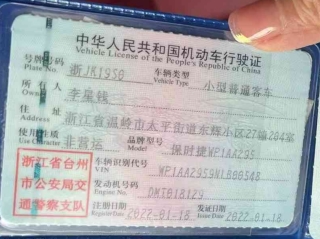 中华人民共和国机动车行驶证
Vehicle License of the People's Republic of China
号牌号码 浙JK1950 车辆类型 小型普通客车
Plate No. Vehicle Type
所有人
Owner
住址 浙江省温岭市太平街道东辉小区27幢204室
Address
使用性质 非营运 品牌型号 保时捷WP1AA295
Use Character Model
浙江省台州 车辆识别代号
VIN
市公安局交 发动机号码 DMT018129
Engine No.
通警察支队 注册日期 2022-01-18 发证日期 2022-01-18
Register Date Issue Date